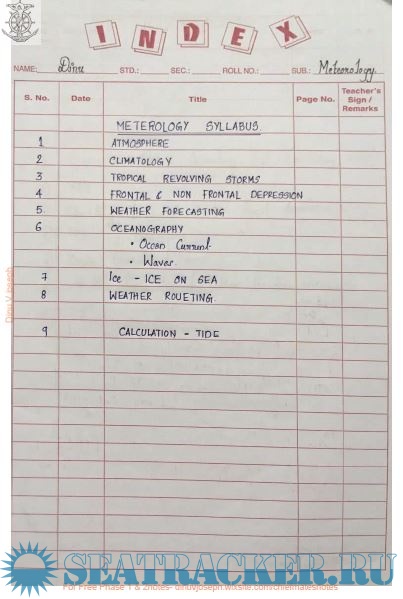 INDEX
NAME: Dinu STD.: SEC.: ROLL NO.: SUB.: Meteorology.
S. No. Date Title Page No. Teacher's Sign / Remarks
METEROLOGY SYLLABUS.
1 ATMOSPHERE
2 CLIMATOLOGY
3 TROPICAL REVOLVING STORMS
4 FRONTAL & NON FRONTAL DEPRESSION
5. WEATHER FORECASTING
6 OCEANOGRAPHY
• Ocean Current
• Waves.
7 Ice - ICE ON SEA
8 WEATHER ROUETING.
9 CALCULATION - TIDE
Dinu V joseph
SEATRACKER.RU
For Free Phase 1 & 2notes- dinuvjoseph.wixsite.com/chiefmatesnotes